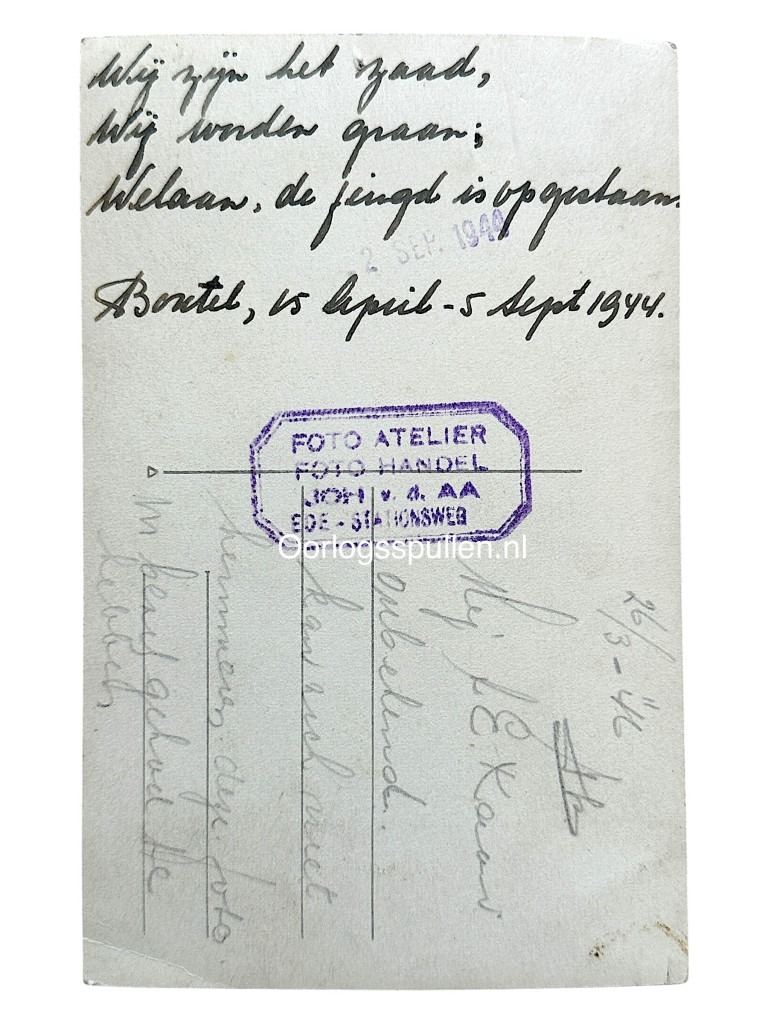 Wij zijn het zaad,
Wij worden graan;
Welaan, de jeugd is opgestaan.
2 SEP. 1944
Boxtel, 15 April - 5 Sept 1944.
FOTO ATELIER
FOTO HANDEL
JOH v. d. AA
EDE - STATIONSWEG
Oorlogsspullen.nl
26/3-'46
Mej
onbekend.
kan zich niet
herinneren deze foto
in bezit gehad te
hebben